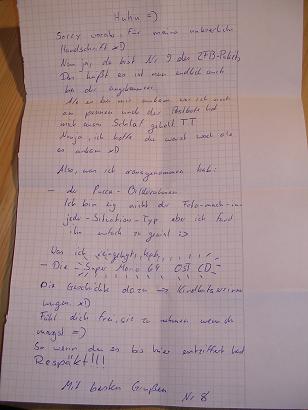 Huhu =)
Sorry vorab, für meine unleserliche
Handschrift xD
Nun ja, du bist Nr 9 des ZFB-Pakets
Das heißt es ist nun endlich auch
bei dir angekommen.
Als es bei mir ankam war ich noch
am pennen und der Postbote hat
mich ausm Schlaf geholt TT
Naja, ich hoffe du warst wach als
es ankam xD
Also, was ich rausgenommen hab:
- den Pucca-Bilderrahmen
Ich bin eig nicht der Foto-mach-in-
jeder-Situation-Typ aber ich fand
ihn einfach zu genial :>
Was ich reingelegt hab,
- Die Super Mario 64 OST CD
Die Geschichte dazu → Kindheitserinne
rungen xD
Fühl dich frei, sie zu nehmen wenn du
magst =)
So wenn du es bis hier entziffert hast
Respäkt!!!
Mit besten Grüßen
Nr 8